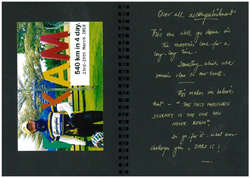 MAY
540 km in 4 day.
23rd-26th March 2018
Over all accomplishment
This one will go down in
the memory lane for a
long-long time.
Something which will
remain close to our hearts.
This makes me believe
that - "THE ONLY IMPOSSIBLE
JOURNEY IS THE ONE YOU
NEVER BEGIN".
So go for it. what ever
challenges you, DARE IT!